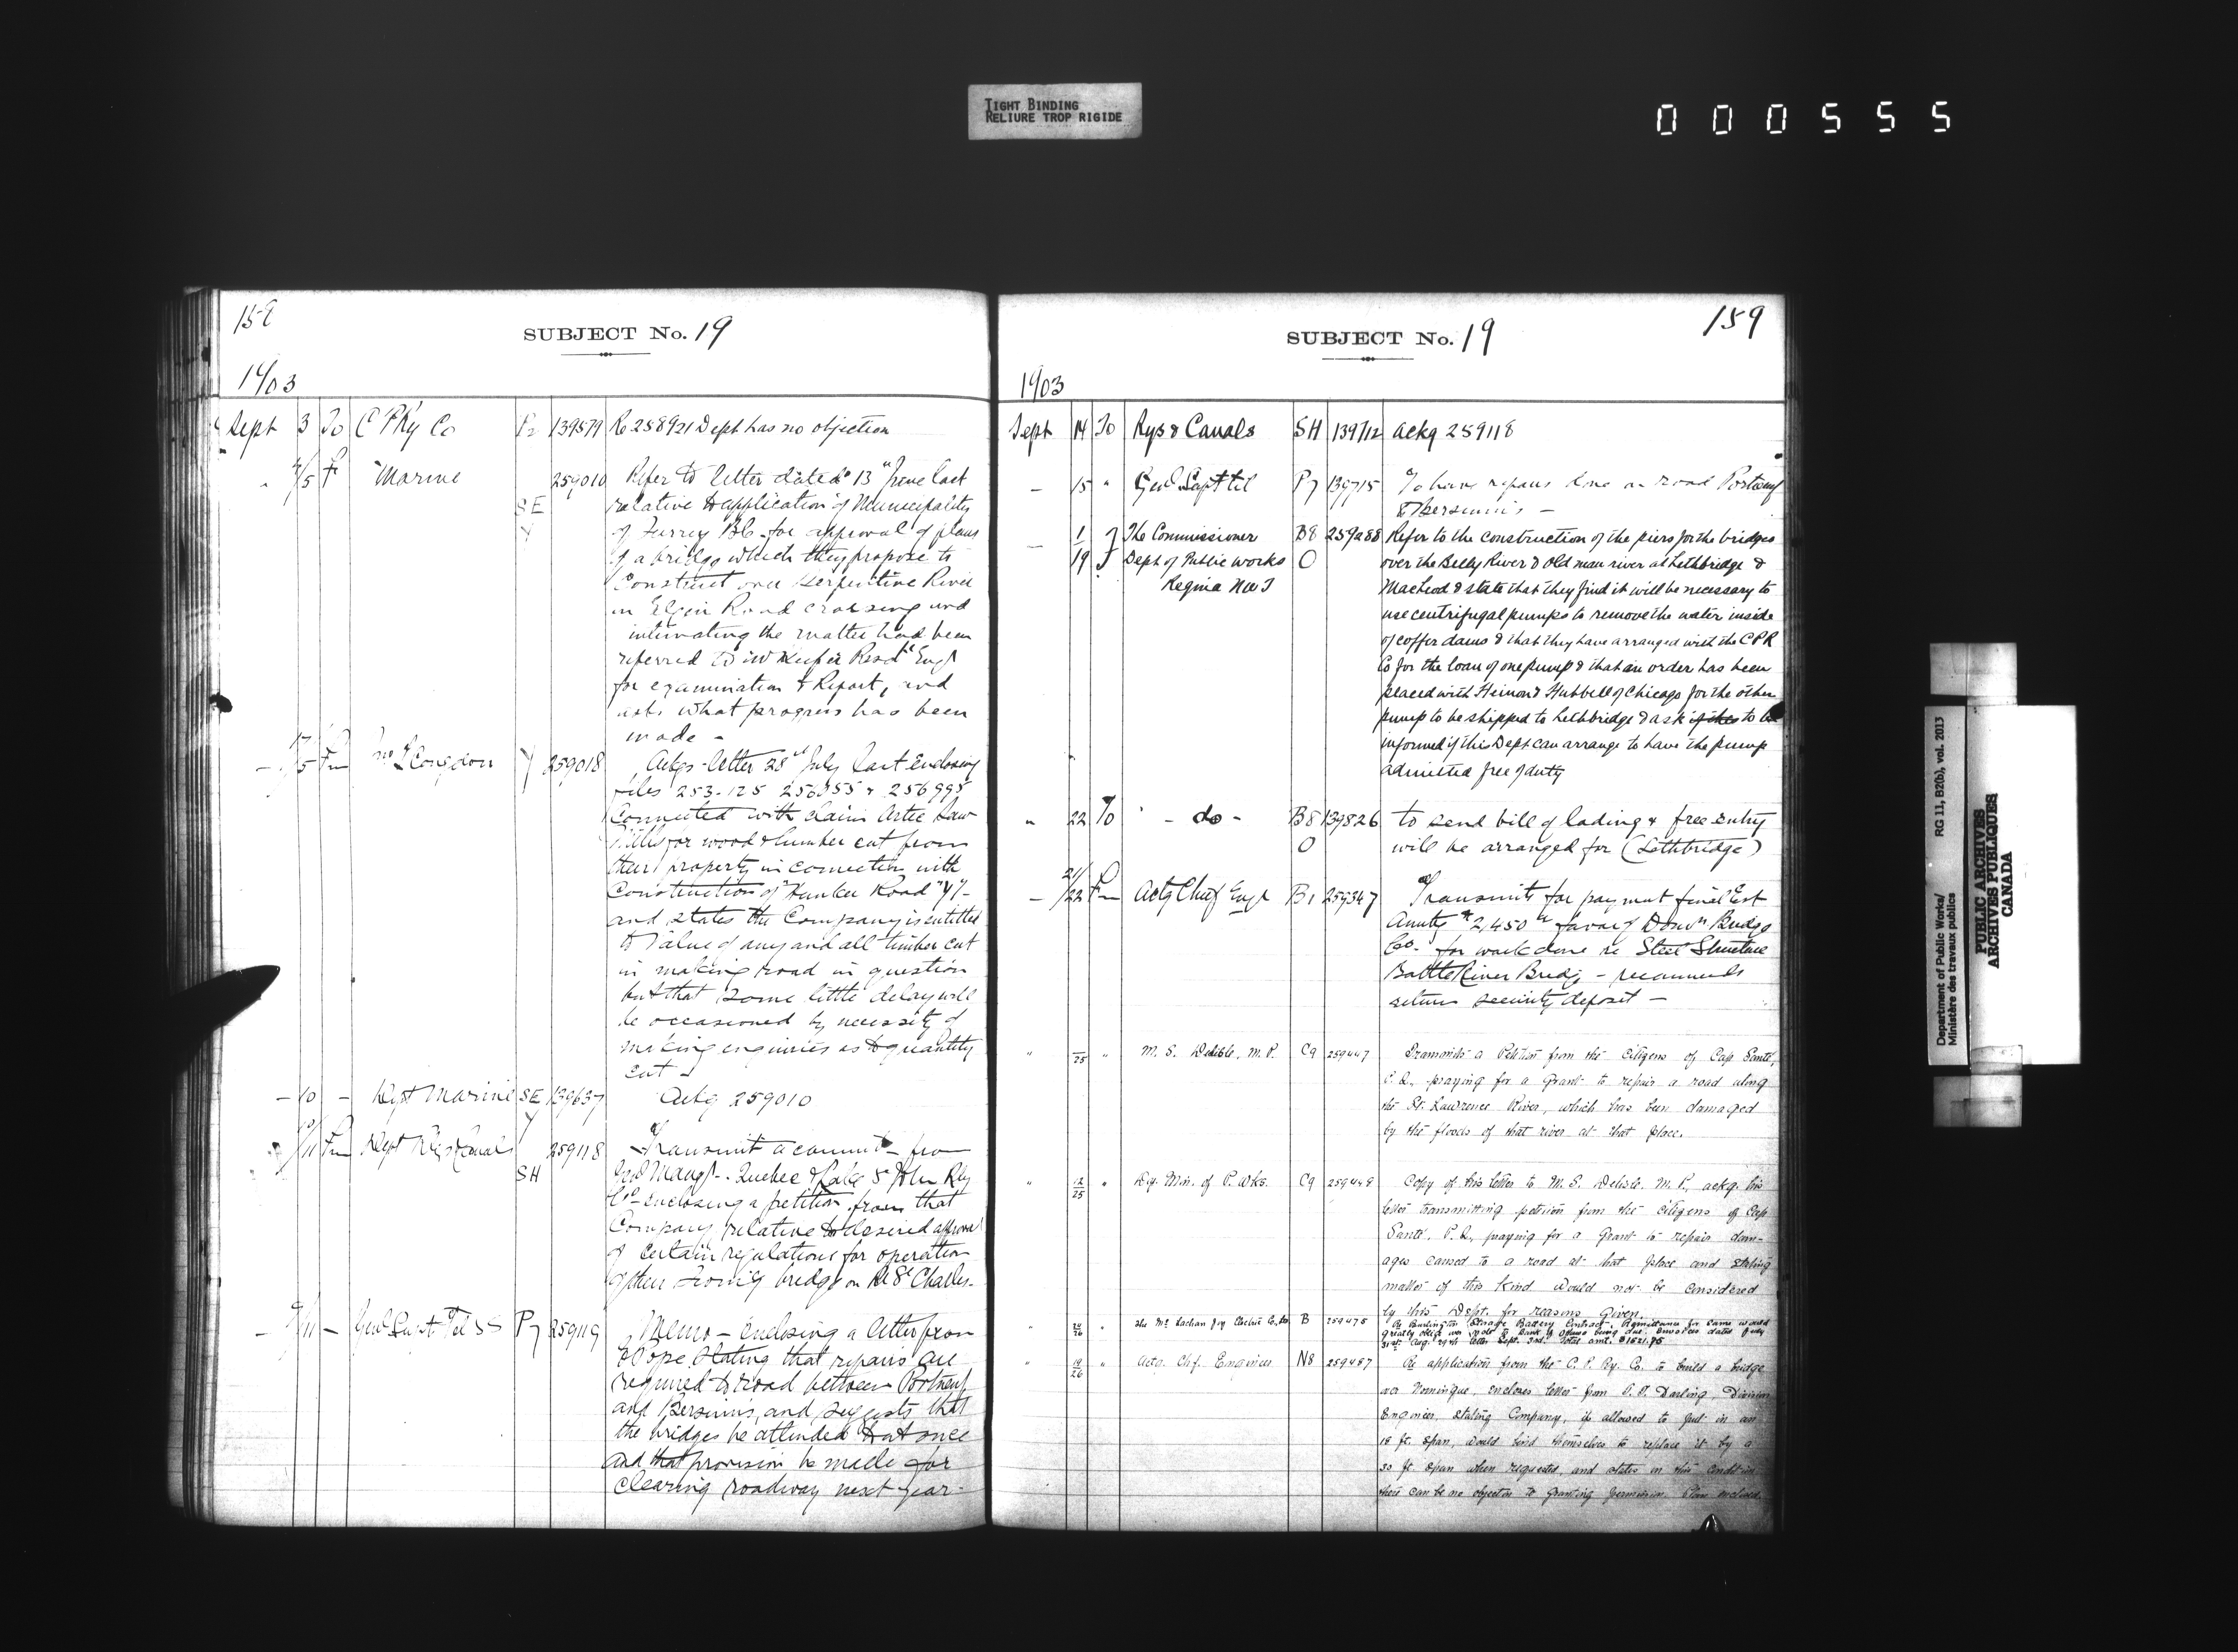 TIGHT BINDING
RELIURE TROP RIGIDE
000555
158
SUBJECT No. 19
1903
Sept 3 To C P Ry Co P2 139579 Re 258921 Dept has no objection
" 4/5 Fr Marine 259010 Refer to letter dated 13" June last
SE relative to application of Municipality
Y of Surrey B.C. for approval of plans
of a bridge which they propose to
Construct over Serpentine River
on Elgin Road crossing and
intimating the matter had been
referred to Mr Keefer Resdt Engr
for examination & Report, and
asks what progress has been
made -
- 17/5 Fm Congdon Y 259018 Ackgs letter 28" July last enclosing
files 253-125 256055 & 256995
Connected with claim Artic Saw
Mills for wood & lumber cut from
their property in connection with
Construction of "Hunker Road" "Y"-
and states the Company is entitled
to value of any and all timber cut
in making road in question
but that some little delay will
be occasioned by necessity of
making enquiries as to quantity
cut -
- 10 - Dept Marine SE 139637 Ackg 259010
Y
11 Fm Dept Rys & Canals 259118 Transmit a commt - from
SH Genl Mangr - Quebec & Lake St John Rly
Co enclosing a petition from that
Company relative to desired approval
of certain regulations for operation
of their swing bridge on R. St Charles.
- 9/11 - Genl Supt Tel SS P7 259119 Memo - Enclosing a letter from
E Pope stating that repairs are
required to road between Portneuf
and Bersimis, and suggests that
the bridges be attended to at once
and that provision be made for
clearing roadway next year-
159
SUBJECT No. 19
1903
Sept 14 To Rys & Canals SH 139712 ackg 259118
- 15 " Genl Supt tel P7 139715 To have repairs done on road Portneuf
& Bersimis -
- 1 The Commissioner B8 259288 Refer to the construction of the piers for the bridges
19 Dept of Public Works O over the Belly River & Old man river at Lethbridge &
Regina NWT MacLeod & state that they find it will be necessary to
use centrifugal pumps to remove the water inside
of coffer dams & that they have arranged with the CPR
Co for the loan of one pump & that an order has been
placed with & Hubbell of Chicago for the other
pump to be shipped to Lethbridge & ask to be
informed if this Dept can arrange to have the pump
admitted free of duty
" 22 To - do - B8 139826 to send bill of lading & free entry
O will be arranged for (Lethbridge)
- 21/22 Fm Actg Chief Engr B1 259347 Transmits for payment final Est
Amtg $2,450 favor of Domn Bridge
Co. for work done re Steel Structure
Battle River Bridge - recommends
return security deposit -
" 25 " M. S. Delisle, M. P. C9 259447 Transmits a Petition from the Citizens of Cap Santé,
P. Q., praying for a Grant to repair a road along
the St. Lawrence River, which has been damaged
by the floods of that river at that place.
" 12/25 " Dy. Min. of P. Wks. C9 259448 Copy of his letter to M. S. Delisle, M. P., ackg. his
letter transmitting petition from the Citizens of Cap
Santé, P. Q., praying for a Grant to repair dam-
ages caused to a road at that place and stating
matter of this kind would not be considered
by this Dept. for reasons given.
" 26 " The Mc Lachan Joy Electric Co. B 259475 Re Burlington Storage Battery Contract. Remittance for same would
greatly oblige being due. Invoices dated July
31st Aug. 29th letter Sept. 3rd. Total amt. $1521.75
" 19/26 " Actg. Chf. Engineer N8 259487 Re application from the C. P. Ry. Co. to build a bridge
Nominigue, encloses letter from Darling, Division
Engineer, stating Company, if allowed to put in an
18 ft. span, would bind themselves to replace it by a
30 ft. span when requested, and states on this condition
there can be no objection to granting permission. Plan enclosed.
Department of Public Works/ RG 11, B2(b), vol. 2013
Ministère des travaux publics
PUBLIC ARCHIVES
ARCHIVES PUBLIQUES
CANADA